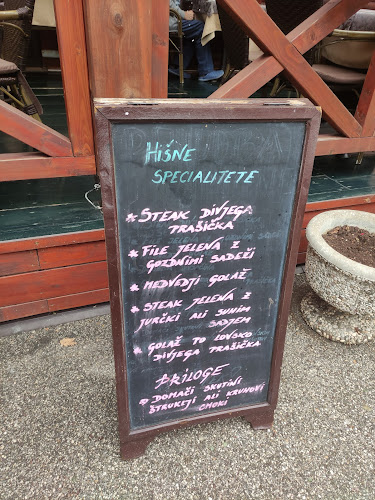 HIŠNE
SPECIALITETE
* STEAK DIVJEGA
PRAŠIČKA
* FILE JELENA Z
GOZDNIMI SADEŽI
* MEDVEDJI GOLAŽ
* STEAK JELENA Z
JURČKI ALI SUHIM
SADJEM
* GOLAŽ TO LOVSKO
DIVJEGA PRAŠIČKA
PRILOGE
DOMAČI SKUTINI
ŠTRUKEJI ALI KRUHOVI
CMOKI